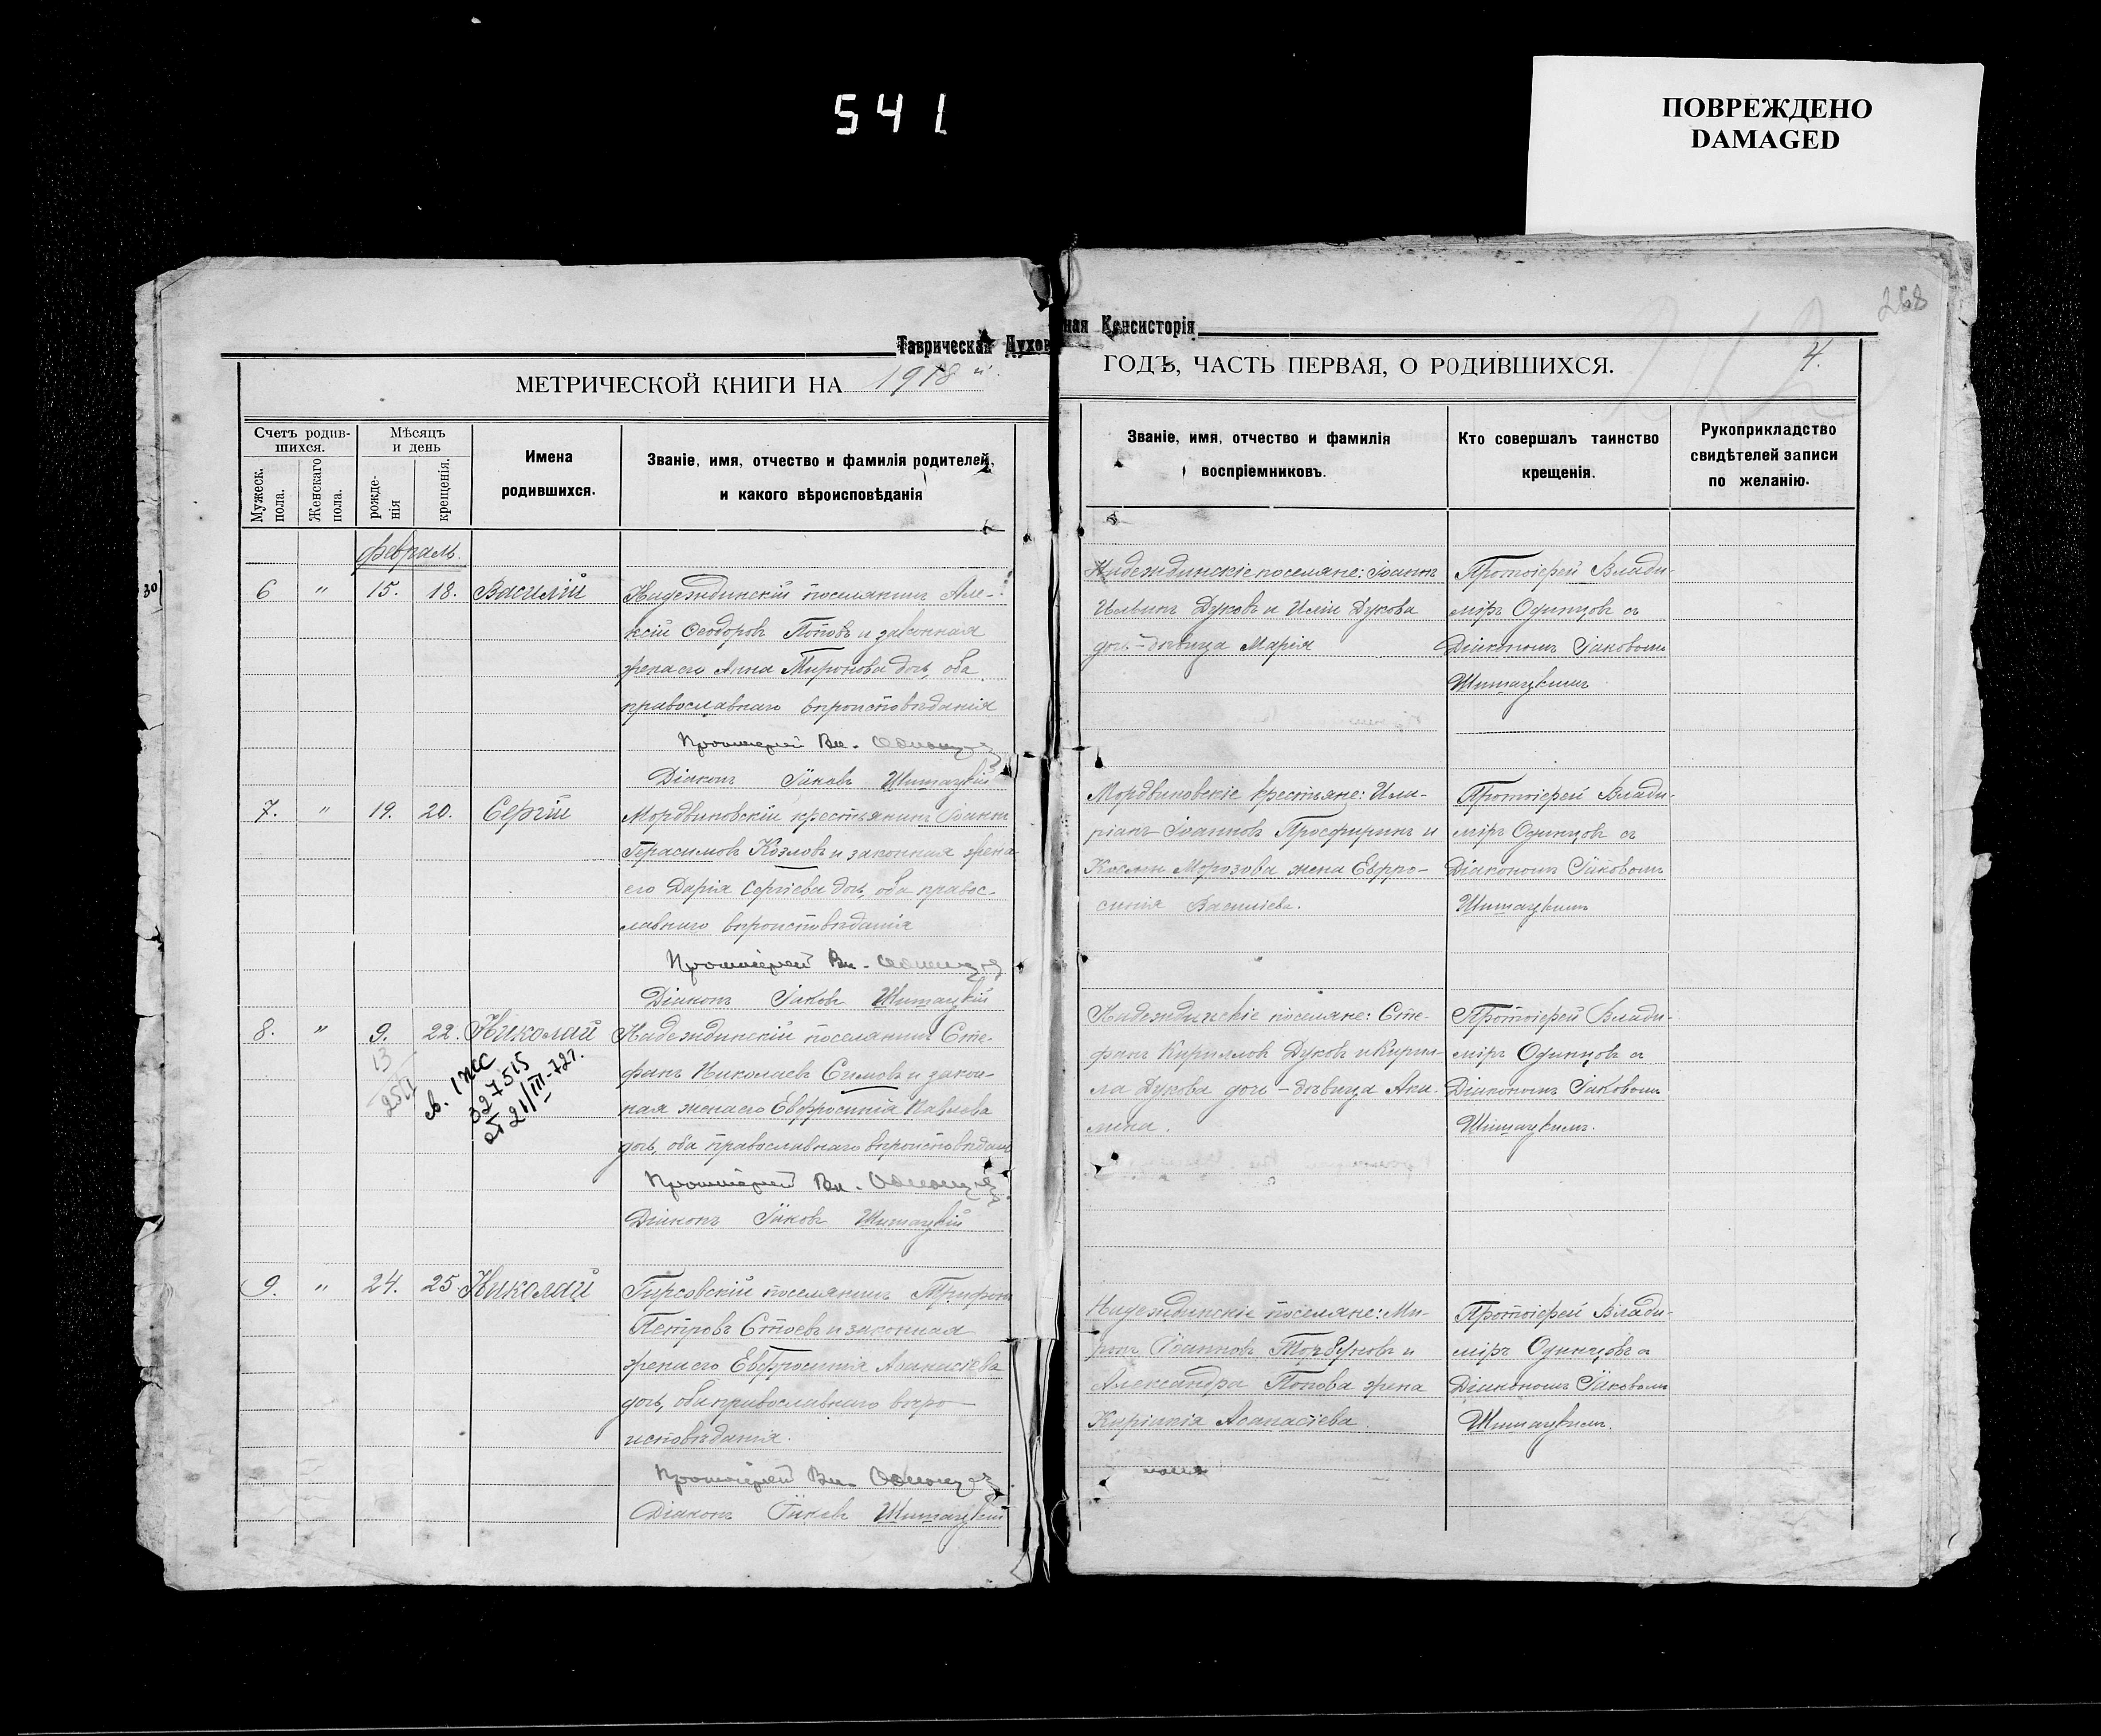 541
ПОВРЕЖДЕНО
DAMAGED
268
Таврическая Духов
ная Консисторія
МЕТРИЧЕСКОЙ КНИГИ НА 1918 й
ГОДЪ, ЧАСТЬ ПЕРВАЯ, О РОДИВШИХСЯ.
4.
Счетъ родив-
шихся.
Мужеск.
пола.
Женскаго
пола.
Мѣсяцъ
и день
рожде-
нія
крещенія.
Имена
родившихся.
Званіе, имя, отчество и фамилія родителей,
и какого вѣроисповѣданія
Званіе, имя, отчество и фамилія
воспріемниковъ.
Кто совершалъ таинство
крещенія.
Рукоприкладство
свидѣтелей записи
по желанію.
30
февраль.
6 " 15. 18. Василій
Надеждинскій поселянинъ Але-
ксій Ѳеодоровъ Поповъ и законная
жена его Анна Миронова дочь, оба
православнаго вѣроисповѣданія
Протоіерей Вл. Одинцовъ
Діаконъ Іаковъ Шитацкій
Надеждинскіе поселяне: Іоаннъ
Ильинъ Дуковъ и Иліи Дукова
дочь-дѣвица Марія
Протоіерей Влади-
міръ Одинцовъ съ
Діакономъ Іаковомъ
Шитацкимъ
7. " 19. 20. Сергій
Мордвиновскій крестьянинъ Іоаннъ
Герасимовъ Козловъ и законная жена
его Дарія Сергіева дочь, оба правос-
лавнаго вѣроисповѣданія
Протоіерей Вл. Одинцовъ
Діаконъ Іаковъ Шитацкій
Мордвиновскіе крестьяне: Ила-
ріанъ Іоанновъ Просфиринъ и
Космы Морозова жена Евфро-
синія Василіева.
Протоіерей Влади-
міръ Одинцовъ съ
Діакономъ Іаковомъ
Шитацкимъ
8. " 9. 22. Николай
13
25/II
в. 1 ЖС
327515
от 21/III-72г.
Надеждинскій поселянинъ Сте-
фанъ Николаевъ Симовъ и закон-
ная жена его Евфросинія Павлова
дочь, оба православнаго вѣроисповѣданія
Протоіерей Вл. Одинцовъ
Діаконъ Іаковъ Шитацкій
Надеждинскіе поселяне: Сте-
фанъ Кирилловъ Дуковъ и Кирил-
ла Дукова дочь-дѣвица Аки-
лина.
Протоіерей Влади-
міръ Одинцовъ съ
Діакономъ Іаковомъ
Шитацкимъ.
9. " 24. 25 Николай
Гирсовскій поселянинъ Трифонъ
Петровъ Стоевъ и законная
жена его Евфросинія Аѳанасіева
дочь, оба православнаго вѣро-
исповѣданія.
Протоіерей Вл. Одинцовъ
Діаконъ Іаковъ Шитацкій
Надеждинскіе поселяне: Ми-
ронъ Іоанновъ Торбуновъ и
Александра Попова жена
Киріакія Аѳанасіева.
Протоіерей Влади-
міръ Одинцовъ съ
Діакономъ Іаковомъ
Шитацкимъ.